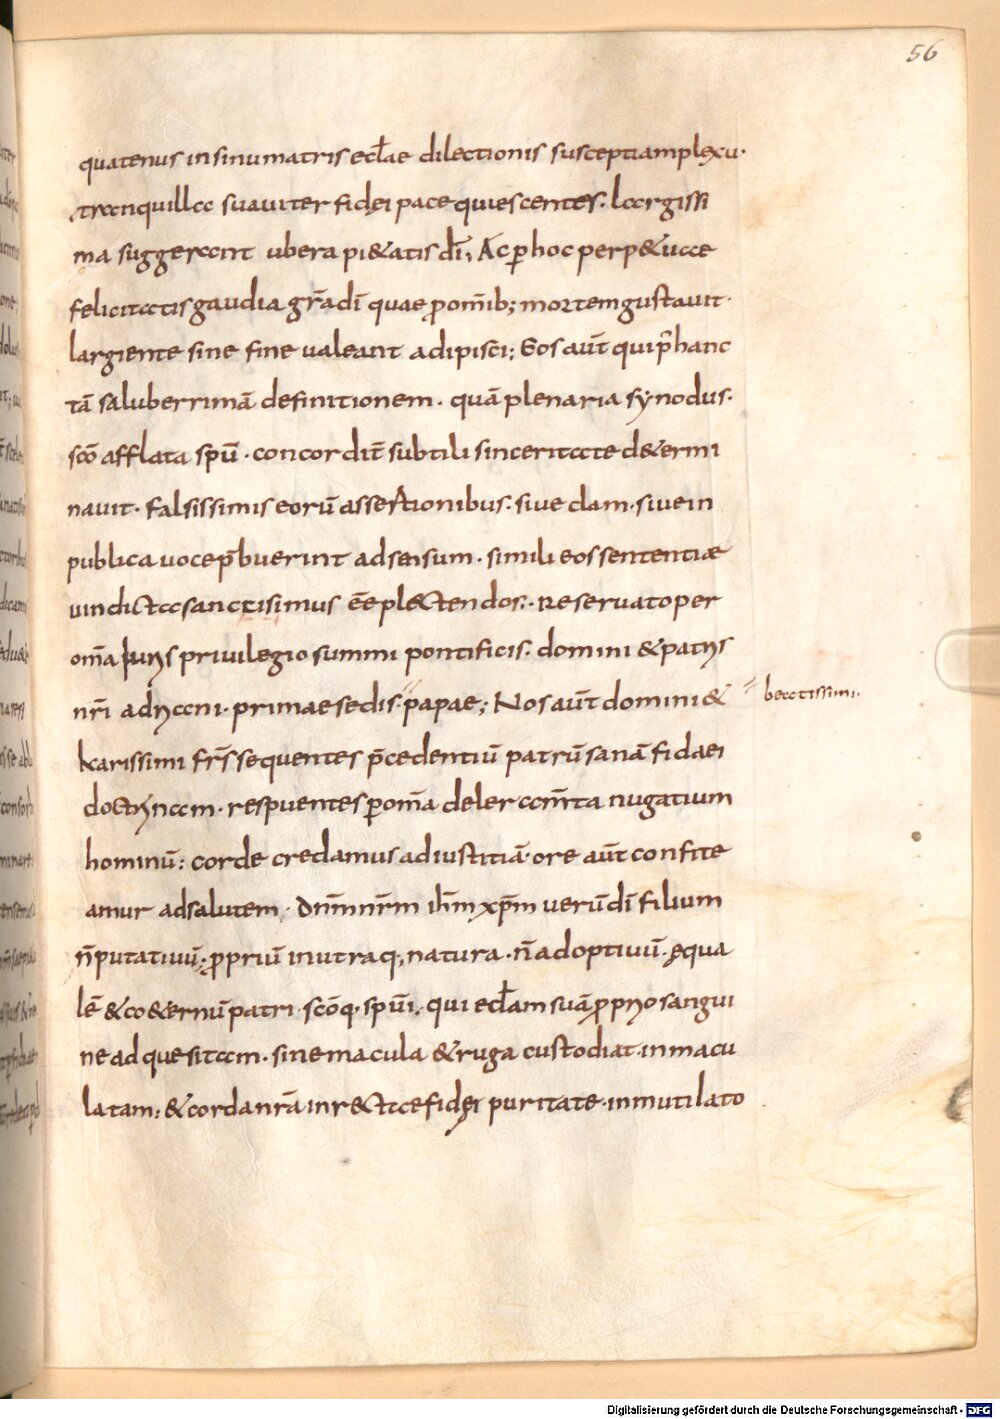 56
quatenus in sinu matris eccl̄ae dilectionis suscepti amplexu·
tranquilla suauiter fidęi pace quiescentes. largissi
ma suggerant ubera pi&atis dī; Ac ꝑ hoc perp&uae
felicitatis gaudia gr̄a dī quae ꝓ om̄ib; mortem gustauit·
largiente sine fine ualeant adipisci; Eos aūt qui p̄ hanc
tā saluberrimā definitionem· quā plenaria synodus·
sc̄o afflata sp̄u· concordit̄ subtili sinceritate d&ermi
nauit· falsissimis eorū assertionibus· siue clam· siue in
publica uoce p̄buerint adsensum· simili eos sententiae
uindicta sanctisimus ēe plectendos· Reseruato per
om̄a Iuris priuilegio summi pontificis· domini & patris
nr̄i adriani· primae sedis· papae; Nos aūt domini & beatissimi·
karissimi fr̄s sequentes p̄cedentiū patrū sanā fidaei
doctrinam· respuentes ꝑ om̄a deleram̄ta nugatium
hominū: corde credamus ad iustitiā· ore aūt confite
amur ad salutem· dn̄m nr̄m ih̄m xp̄m uerū dī filium
n̄ putatiuū· ꝓpriū in utraq; natura· n̄ adoptiuū· ęqua
lē & co&ernū patri· sc̄oq· sp̄ui· qui eccl̄am suā ꝓprio sangui
ne adquesitam· sine macula & ruga custodiat inmacu
latam: & corda nr̄a in recta fidęi puritate· inmutilato
Digitalisierung gefördert durch die Deutsche Forschungsgemeinschaft - DFG